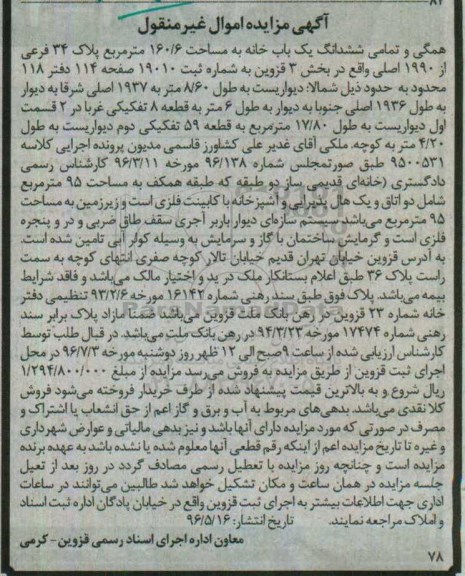 آگهی مزایده اموال غیرمنقول
همگی و تمامی ششدانگ یک باب خانه به مساحت ۱۶۰/۶ مترمربع پلاک ۳۴ فرعی
از ۱۹۹۰ اصلی واقع در بخش ۳ قزوین به شماره ثبت ۱۹۰۱۰ صفحه ۱۱۴ دفتر ۱۱۸
محدود به حدود ذیل شمالا: دیواریست به طول ۸/۶۰ متر به ۱۹۳۷ اصلی شرقا به دیوار
به طول ۱۹۳۶ اصلی جنوبا به دیوار به طول ۶ متر به قطعه ۸ تفکیکی غربا در ۲ قسمت
اول دیواریست به طول ۱۷/۸۰ مترمربع به قطعه ۵۹ تفکیکی دوم دیواریست به طول
۴/۲۰ متر به کوچه، ملکی آقای غدیر علی کشاورز قاسمی مدیون پرونده اجرایی کلاسه
۹۵۰۰۵۳۱ طبق صورتمجلس شماره ۹۶/۱۳۸ مورخه ۹۶/۳/۱۱ کارشناس رسمی
دادگستری (خانه‌ای قدیمی ساز دو طبقه که طبقه همکف به مساحت ۹۵ مترمربع
شامل دو اتاق و یک هال پذیرایی و آشپزخانه با کابینت فلزی است و زیرزمین به مساحت
۹۵ مترمربع می‌باشد سیستم سازه‌ای دیوار باربر آجری سقف طاق ضربی و در و پنجره
فلزی است و گرمایش ساختمان با گاز و سرمایش به وسیله کولر آبی تامین شده است.
به آدرس قزوین خیابان تهران قدیم خیابان تالار کوچه صفری انتهای کوچه به سمت
راست پلاک ۳۶ طبق اعلام بستانکار ملک در ید و اختیار مالک می‌باشد و فاقد شرایط
بیمه می‌باشد. پلاک فوق طبق سند رهنی شماره ۱۶۱۴۲ مورخه ۹۳/۲/۶ تنظیمی دفتر
خانه شماره ۲۳ قزوین در رهن بانک ملت قزوین می‌باشد ضمنا مازاد پلاک برابر سند
رهنی شماره ۱۷۴۷۴ مورخه ۹۴/۳/۲۳ در رهن بانک ملت می‌باشد. در قبال طلب توسط
کارشناس ارزیابی شده از ساعت ۹ صبح الی ۱۲ ظهر روز دوشنبه مورخه ۹۶/۷/۳ در محل
اجرای ثبت قزوین از طریق مزایده به فروش می‌رسد مزایده از مبلغ ۱/۲۹۴/۸۰۰/۰۰۰
ریال شروع و به بالاترین قیمت پیشنهاد شده از طرف خریدار فروخته می‌شود فروش
کلا نقدی می‌باشد. بدهی‌های مربوط به آب و برق و گاز اعم از حق انشعاب یا اشتراک و
مصرف در صورتی که مورد مزایده دارای آنها باشد و نیز بدهی مالیاتی و عوارض شهرداری
و غیره تا تاریخ مزایده اعم از اینکه رقم قطعی آنها معلوم شده یا نشده باشد به عهده برنده
مزایده است و چنانچه روز مزایده با تعطیل رسمی مصادف گردد در روز بعد از تعیل
جلسه مزایده در همان ساعت و مکان تشکیل خواهد شد طالبین می‌توانند در ساعات
اداری جهت اطلاعات بیشتر به اجرای ثبت قزوین واقع در خیابان پادگان اداره ثبت اسناد
و املاک مراجعه نمایند. تاریخ انتشار: ۹۶/۵/۱۶
معاون اداره اجرای اسناد رسمی قزوین- کرمی
۷۸